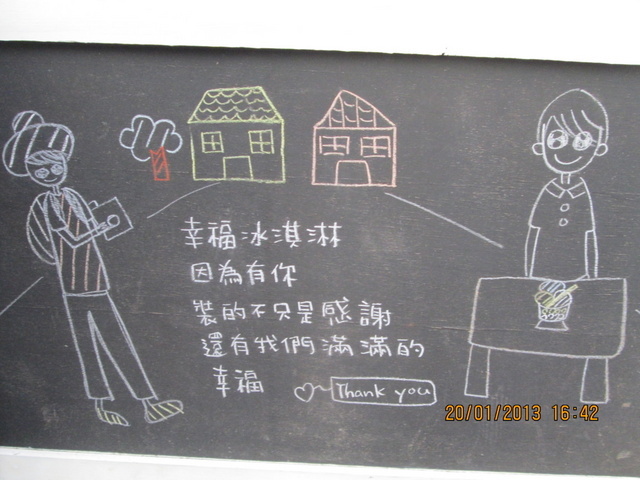 幸福冰淇淋
因為有你
裝的不只是感謝
還有我們滿滿的
幸福
Thank you
20/01/2013 16:42